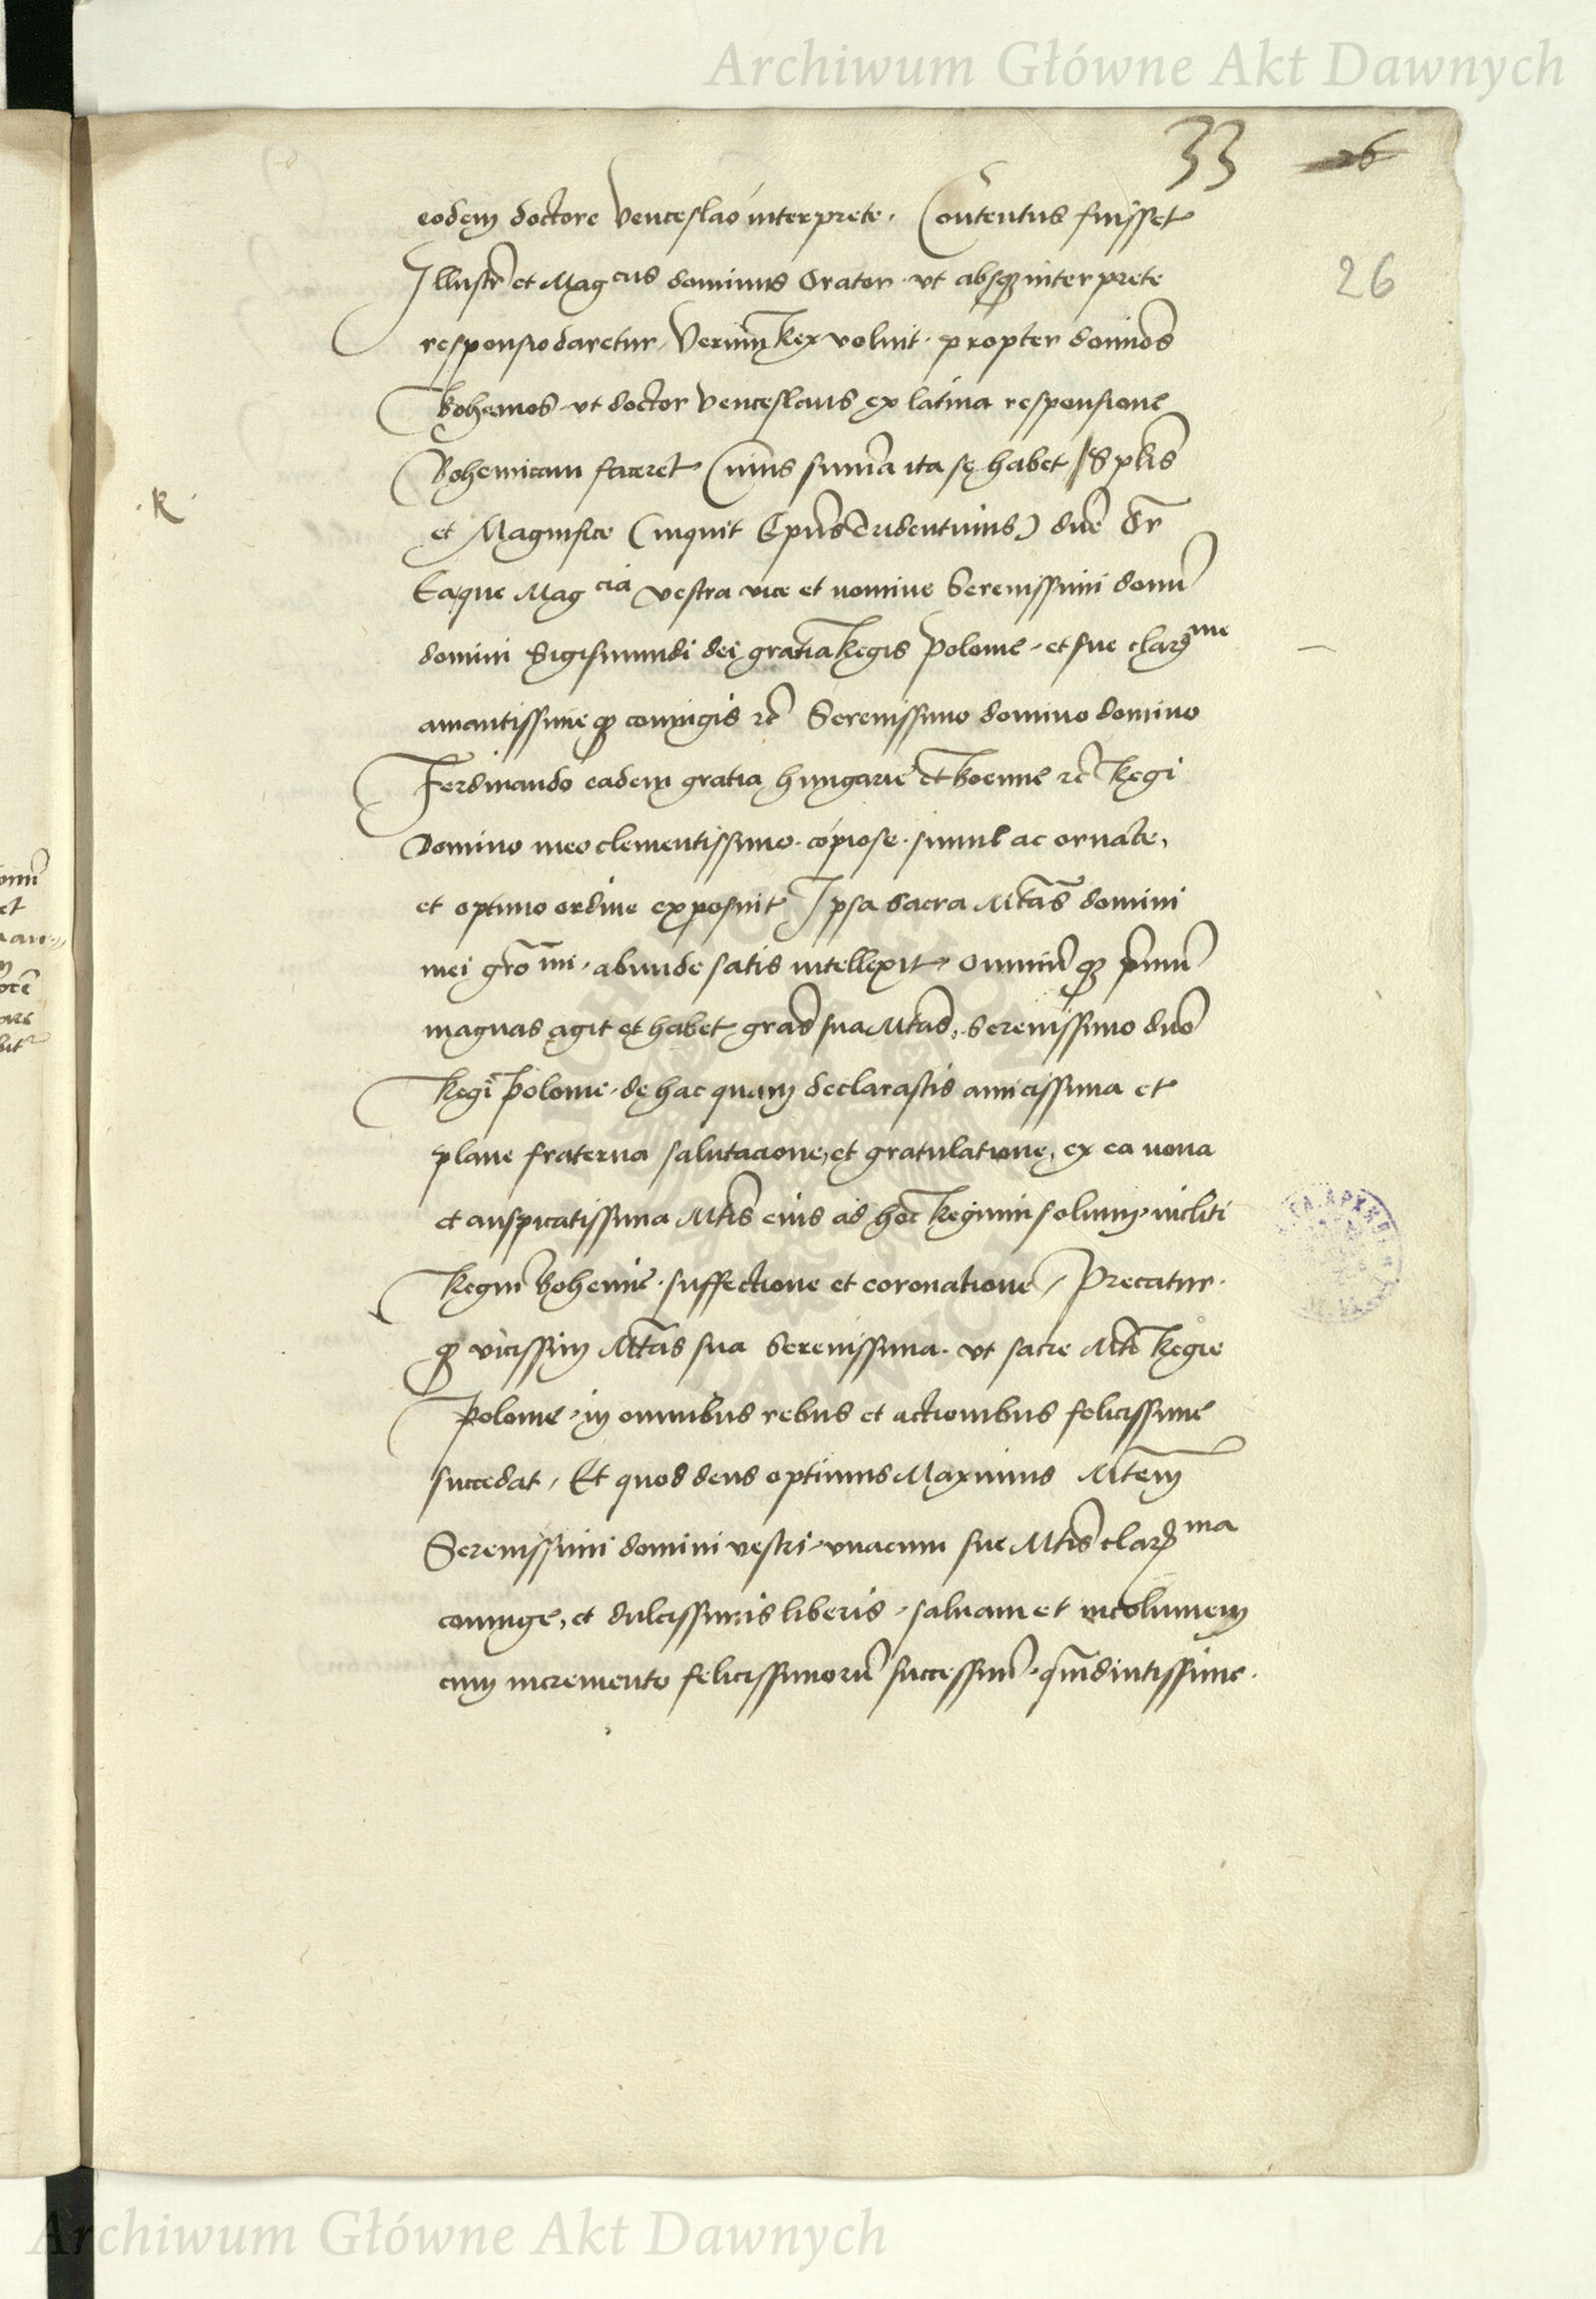 Archiwum Główne Akt Dawnych
33 26
eodem doctore Venceslao interprete. Contentus fuisset
Illustr̄ et Magcus dominus Orator. vt absq̨ interprete
responsio daretur, Verum̄ Rex voluit. propter domiōs
Bohemos. vt doctor Venceslaus ex latina responsione
Bohemicam faceret. Cuius sum̄a ita se habet / Splīs
et Magnifice (inquit Ep̄us Tridentinus) dn̄e Or̄
Eaque Magcia vestra vice et nomine Serenissimi domī
domini Sigismundi dei gratia Regis Polonie. et sue clarme
amantissimeq̨ coniugis ꝛc̄ Serenissimo domino domino
Ferdinando eadem gratia hungarie et boemie ꝛc̄ Regi
Domino meo clementissimo. copiose. simul ac ornate,
et optimo ordine exposuit. Ipsa sacra Mtās domini
mei gromi. abunde satis intellexit. omniūq̨ p̄mū
magnas agit et habet grās sua Mtās, serenissimo dn̄o
Regi Polonie. de hac quam declarastis amicissima et
plane fraterna salutacione, et gratulatione, ex ea noua
et auspicatissima Mtīs eius ad hoc Regimī solium. incliti
Regni Bohemie. suffectione et coronatione, Precatur.
q̨ vicissim Mtās sua Serenissima. vt sacre Mtī Regie
Polonie. in omnibus rebus et actionibus felicissime
succedat, Et quod deus optimus Maximus Mtēm
Serenissimi domini vestri. vnacum sue Mtīs clarma
coniuge, et dulcissimis liberis. saluam et incolumem
cum incremento felicissimorū successuū. q̄mdiutissime.
26
R
Archiwum Główne Akt Dawnych